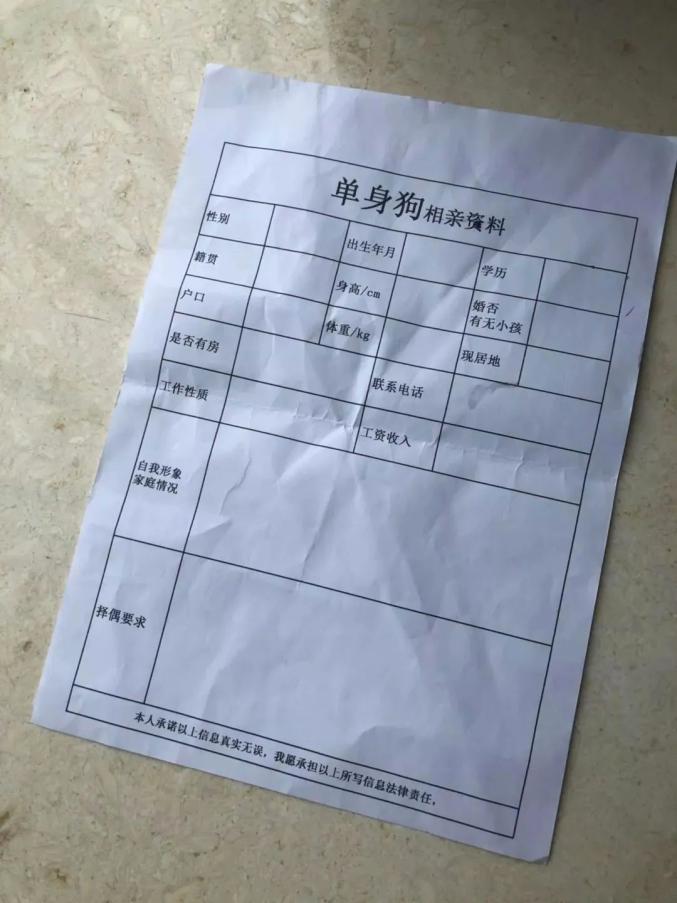 单身狗相亲资料
性别 出生年月 学历
籍贯 身高/cm 婚否
有无小孩
户口 体重/kg 现居地
是否有房 联系电话
工作性质 工资收入
自我形象
家庭情况
择偶要求
本人承诺以上信息真实无误，我愿承担以上所写信息法律责任，